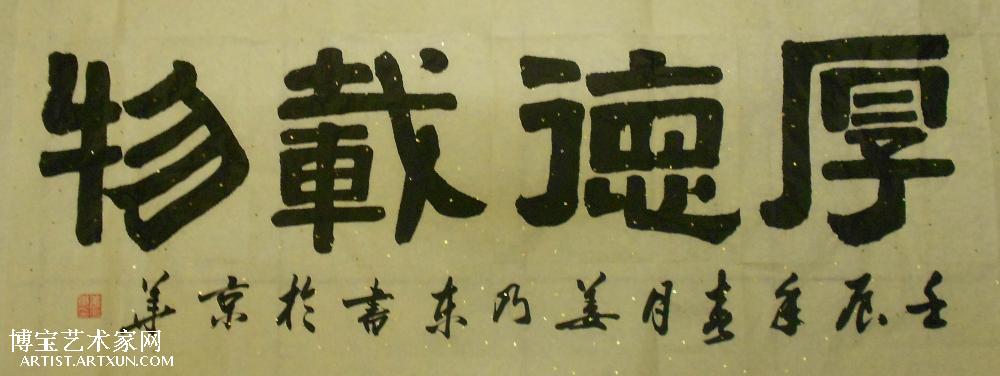 厚德載物
壬辰年春月姜乃东書於京華
博宝艺术家网
ARTIST.ARTXUN.COM